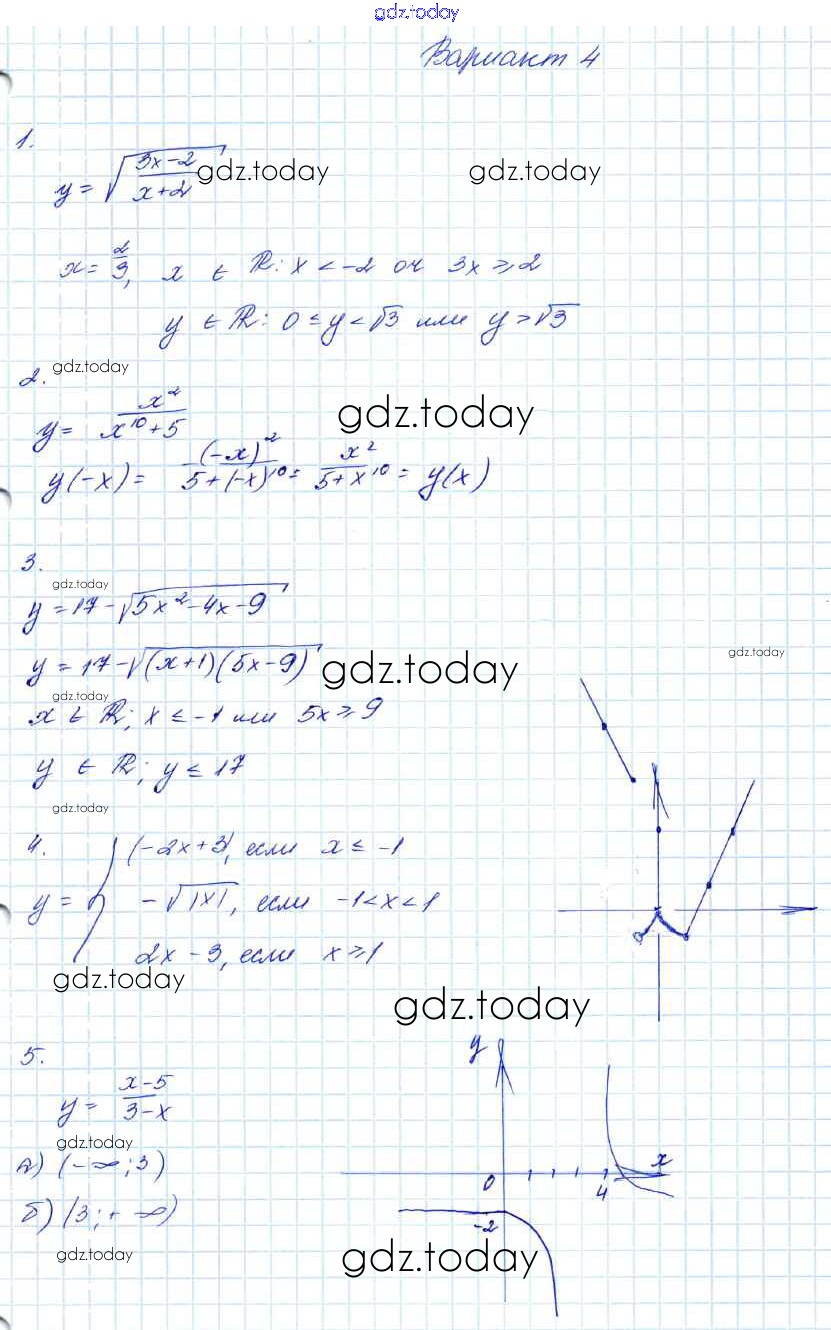 gdz.today
Вариант 4
1.
y = √((3x-2)/(x+2)) gdz.today gdz.today
x = 2/3, x ∈ ℝ: x < -2 or 3x ≥ 2
y ∈ ℝ: 0 ≤ y < √3 или y > √3
2. gdz.today
y = x²/(x¹⁰+5) gdz.today
y(-x) = (-x)²/(5+(-x)¹⁰) = x²/(5+x¹⁰) = y(x)
3.
gdz.today
y = 17 - √(5x²-4x-9)
y = 17 - √((x+1)(5x-9)) gdz.today gdz.today
gdz.today
x ∈ ℝ; x ≤ -1 или 5x ≥ 9
y ∈ ℝ; y ≤ 17
gdz.today
4. (-2x+3), если x ≤ -1
y = { -√|x|, если -1<x<1
2x-3, если x ≥ 1
gdz.today
gdz.today
5. y
y = (x-5)/(3-x)
gdz.today
а) (-∞; 3) x
0 4
б) (3; +∞) -2
gdz.today gdz.today